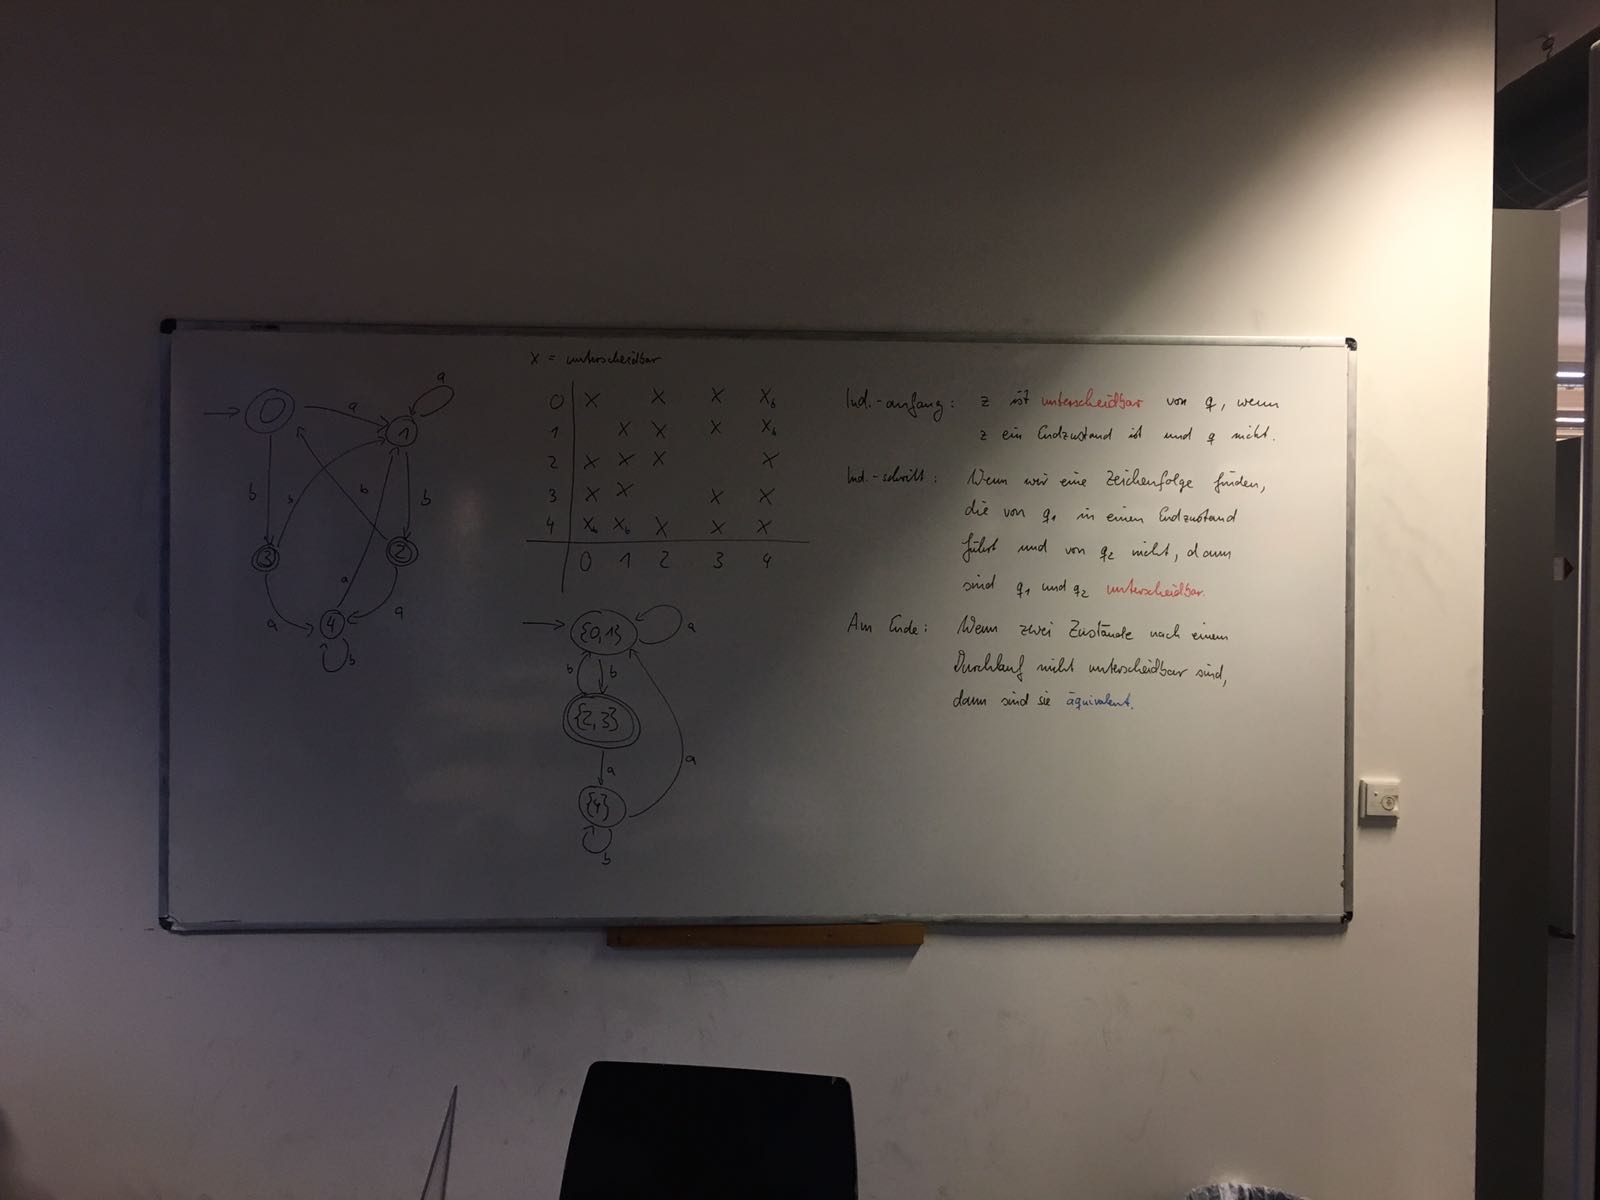 0
a
a
1
b
b
b
b
3
2
a
a
a
4
b
X = unterscheidbar
0 X X X X_b
1 X X X X_b
2 X X X X
3 X X X X
4 X_b X_b X X X
0 1 2 3 4
{0,1}
a
b
b
{2,3}
a
a
{4}
b
Ind.-anfang: z ist unterscheidbar von q, wenn
z ein Endzustand ist und q nicht.
Ind.-schritt: Wenn wir eine Zeichenfolge finden,
die von q1 in einen Endzustand
führt und von q2 nicht, dann
sind q1 und q2 unterscheidbar.
Am Ende: Wenn zwei Zustände nach einem
Durchlauf nicht unterscheidbar sind,
dann sind sie äquivalent.